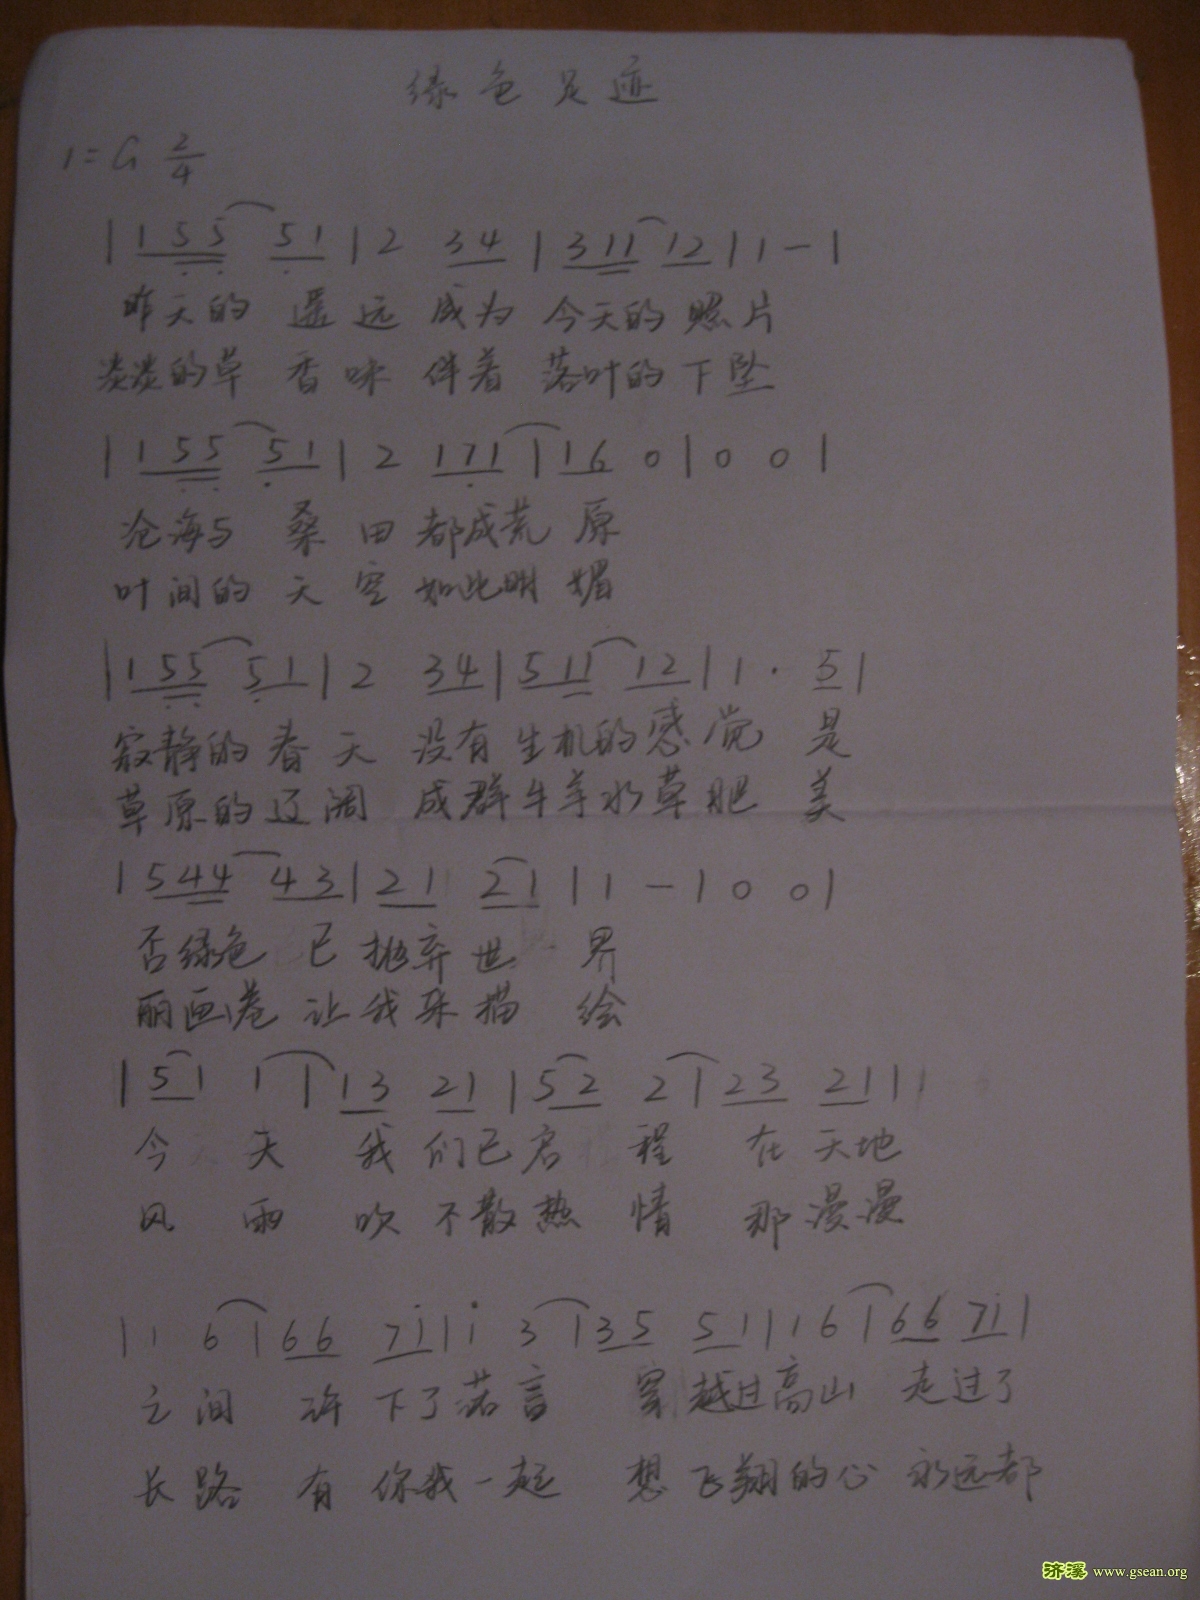 绿色足迹
1=G 2/4
| 1 5 5 5 1 | 2 3 4 | 3 1 1 1 2 | 1 - |
昨天的 遥远 成为 今天的 照片
淡淡的草 香味 伴着 落叶的 下坠
| 1 5 5 5 1 | 2 1 7 1 | 1 6 0 | 0 0 |
沧海与 桑田 都成荒 原
叶间的 天空 如此明 媚
| 1 5 5 5 1 | 2 3 4 | 5 1 1 1 2 | 1 · 5 |
寂静的春天 没有生机的感觉 是
草原的辽阔 成群牛羊水草肥 美
| 5 4 4 4 3 | 2 1 2 1 | 1 - | 0 0 |
否绿色 已抛弃世 界
丽画卷 让我来描 绘
| 5 1 1 | 1 3 2 1 | 5 2 2 | 2 3 2 1 |
今 天 我 们已启 程 在 天地
风 雨 吹 不散热 情 那 漫漫
| 1 6 | 6 6 7 i | i 3 | 3 5 5 1 | 1 6 | 6 6 7 i |
之间 许 下了诺言 穿越过高山 走过了
长路 有 你我一起 想飞翔的心 永远都
济溪 www.gsean.org